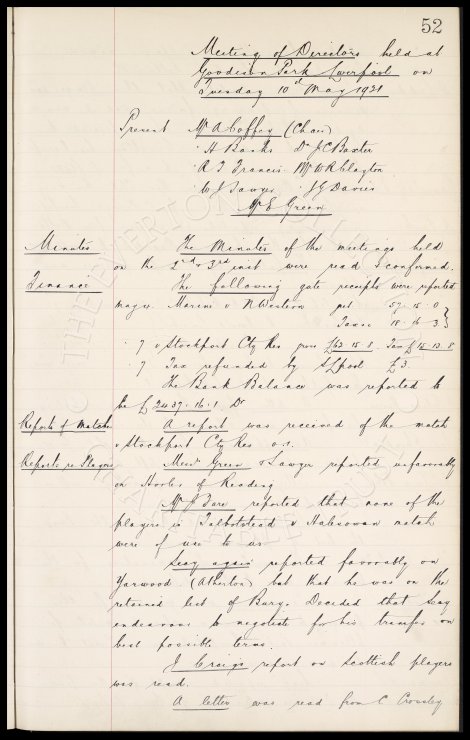 52
Meeting of Directors held at
Goodison Park Liverpool on
Tuesday 10th May 1921
Present Mr A Coffey (Chair)
" H Banks Dr J C Baxter
" A T Francis Mr W R Clayton
" W J Sawyer " J G Davies
Mr E Green
Minutes The Minutes of the meetings held
on the 2nd & 3rd inst were read & confirmed.
Finance The following gate receipts were reported
may Marine v N Western get 57. 15. 0
Taxes 18. 16. 3
" 7 v Stockport Cty Res gross £63 15 8 Tax £15. 13. 8
" 7 Tax refunded by £3
The Bank Balance was reported to
be £2437. 16. 1 Dr
Report of Match A report was received of the match
v Stockport Cty Res
Reports re Players Messrs Green & Sawyer reported unfavorably
on of Reading
Mr J reported that none of the
players in v Halesowen match
were of use to us
again reported favorably on
Yarwood (Atherton) but that he was on the
retained list of Bury. Decided that
endeavour to negotiate for his transfer on
best possible terms.
J Craigs report on Scottish players
was read.
A letter was read from C Crossley
THE EVERTON
CHARITABLE TRUST